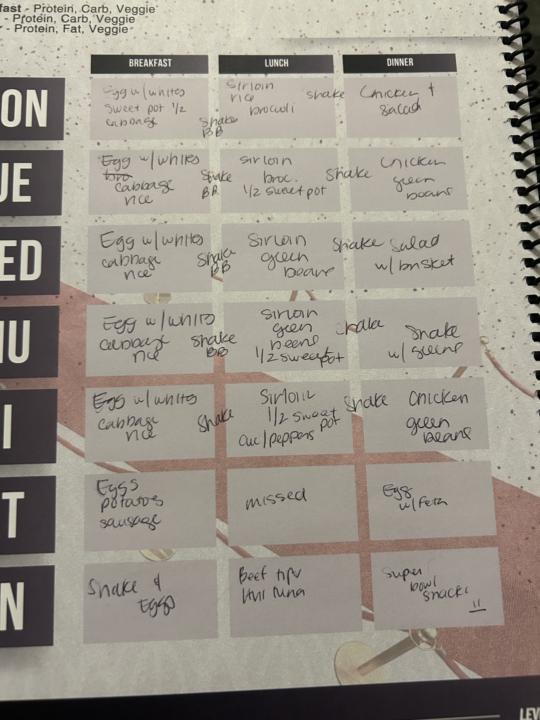 fast - Protein, Carb, Veggie
- Protein, Carb, Veggie
- Protein, Fat, Veggie
BREAKFAST LUNCH DINNER
ON
Egg w/whites
sweet pot 1/2
cabbage
Shake
BB
Sirloin
rice
broccoli
shake
Chicken +
salad
UE
Egg w/whites
cabbage
rice
Shake
BB
sirloin
broc.
1/2 sweet pot
Shake
Chicken
green
beans
ED
Egg w/whites
cabbage
rice
Shake
BB
Sirloin
green
beans
Shake
Salad
w/ brisket
HU
Egg w/whites
cabbage
rice
Shake
BB
Sirloin
green
beans
1/2 sweet pot
shake
Shake
w/ greens
I
Egg w/whites
cabbage
rice
Shake
Sirloin
1/2 sweet pot
cuc/peppers
Shake
Chicken
green
beans
T
Eggs
potatoes
sausage
missed
Egg
w/feta
N
Shake &
Eggs
Beef tips
Super
bowl
snacks
LEV